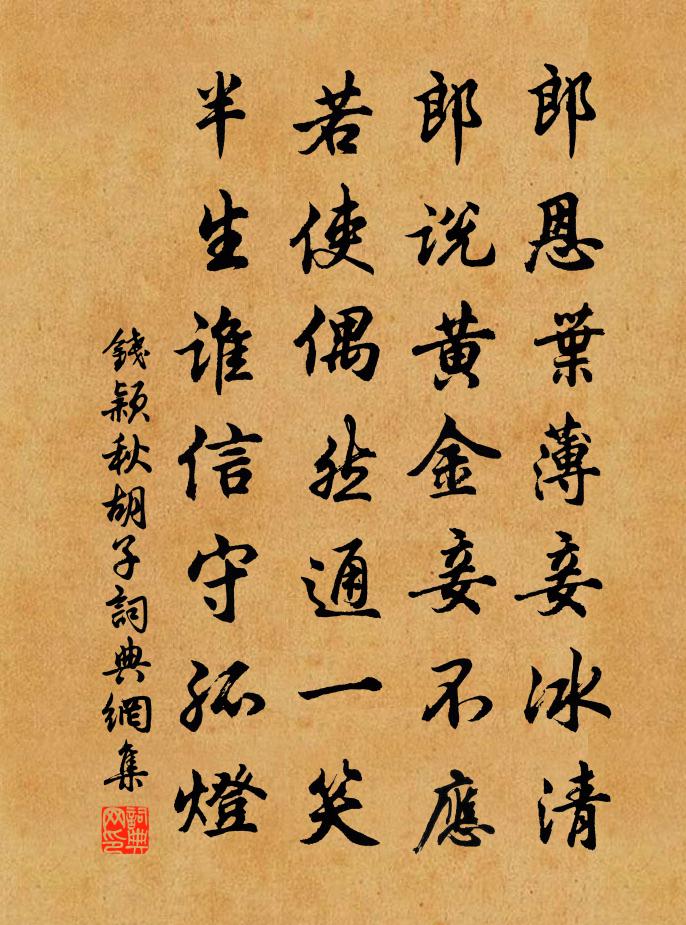 郎恩葉薄妾冰清
郎說黃金妾不應
若使偶然通一笑
半生誰信守孤燈
錢穎秋胡子詞典網集
詞典網印